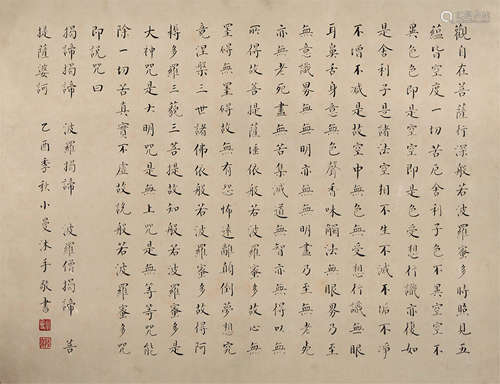 觀自在菩薩行深般若波羅蜜多時照見五
蘊皆空度一切苦厄舍利子色不異空空不
異色色即是空空即是色受想行識亦復如
是舍利子是諸法空相不生不滅不垢不淨
不增不減是故空中無色無受想行識無眼
耳鼻舌身意無色聲香味觸法無眼界乃至
無意識界無無明亦無無明盡乃至無老死
亦無老死盡無苦集滅道無智亦無得以無
所得故菩提薩埵依般若波羅蜜多故心無
罣碍無罣碍故無有恐怖遠離顛倒夢想究
竟涅槃三世諸佛依般若波羅蜜多故得阿
耨多羅三藐三菩提故知般若波羅蜜多是
大神咒是大明咒是無上咒是無等等咒能
除一切苦真實不虛故說般若波羅蜜多咒
即說咒曰
揭諦揭諦 波羅揭諦 波羅僧揭諦 菩
提薩婆訶 乙酉季秋小曼沐手敬書